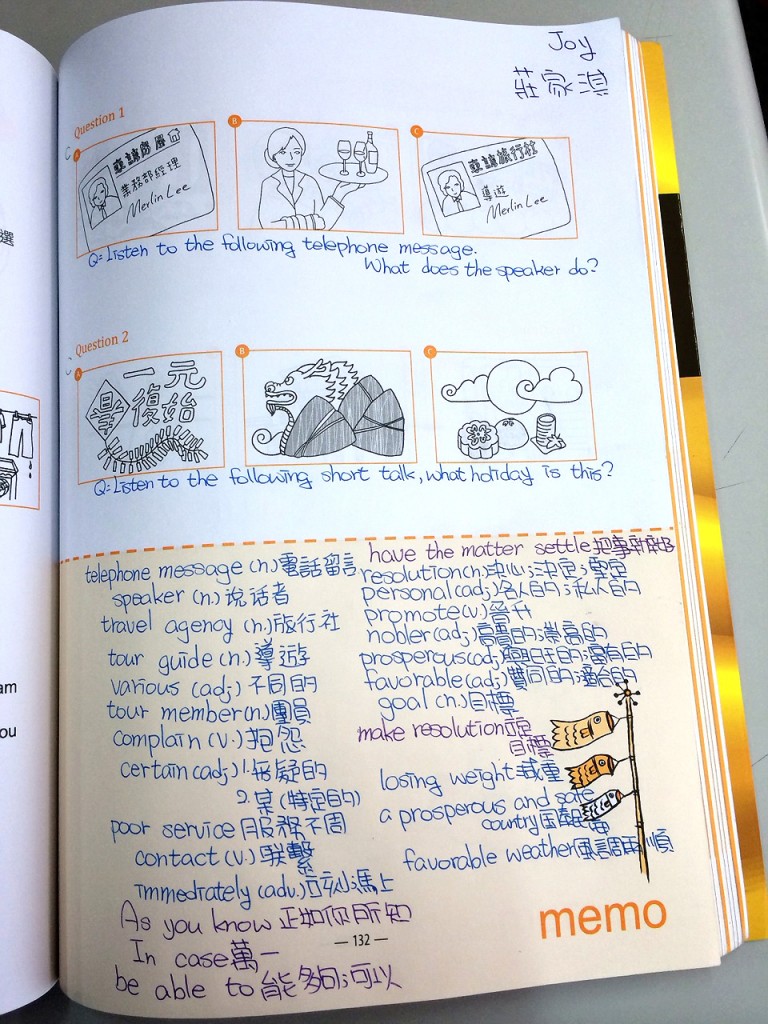 Joy
莊家淇
Question 1
A
B
C
業務部經理
Merlin Lee
旅行社
導遊
Merlin Lee
Q: Listen to the following telephone message.
What does the speaker do?
Question 2
A
B
C
一元
復始
Q: Listen to the following short talk, what holiday is this?
選
am
ou
telephone message (n.) 電話留言
speaker (n.) 说话者
travel agency (n.) 旅行社
tour guide (n.) 導遊
various (adj.) 不同的
tour member (n.) 團員
complain (v.) 抱怨
certain (adj.) 1.
2. 某(特定的)
poor service 服務不周
contact (v.) 联繫
immediately (adv.) 立刻;馬上
As you know 正如你所知
In case 萬一
be able to 能夠;可以
have the matter settle 把事
resolution (n.) 决心;决定;
personal (adj.) 個人的;私人的
promote (v.) 晉升
nobler (adj.) 高貴的;崇高的
prosperous (adj.) 興旺的;富有的
favorable (adj.) 贊同的;適合的
goal (n.) 目標
make resolution
目標
losing weight 減重
a prosperous and safe
country 国
favorable weather 風調雨順
memo
— 132 —